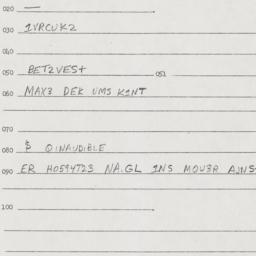 020 —
030 1VRCUK2
040
050 BET2VES+ 051
060 MAX3 DEK UMS K1NT
070
080 $ 0INAUDIBLE
090 ER H0594T23 NA.GL 1NS MOU3R AJNS
100